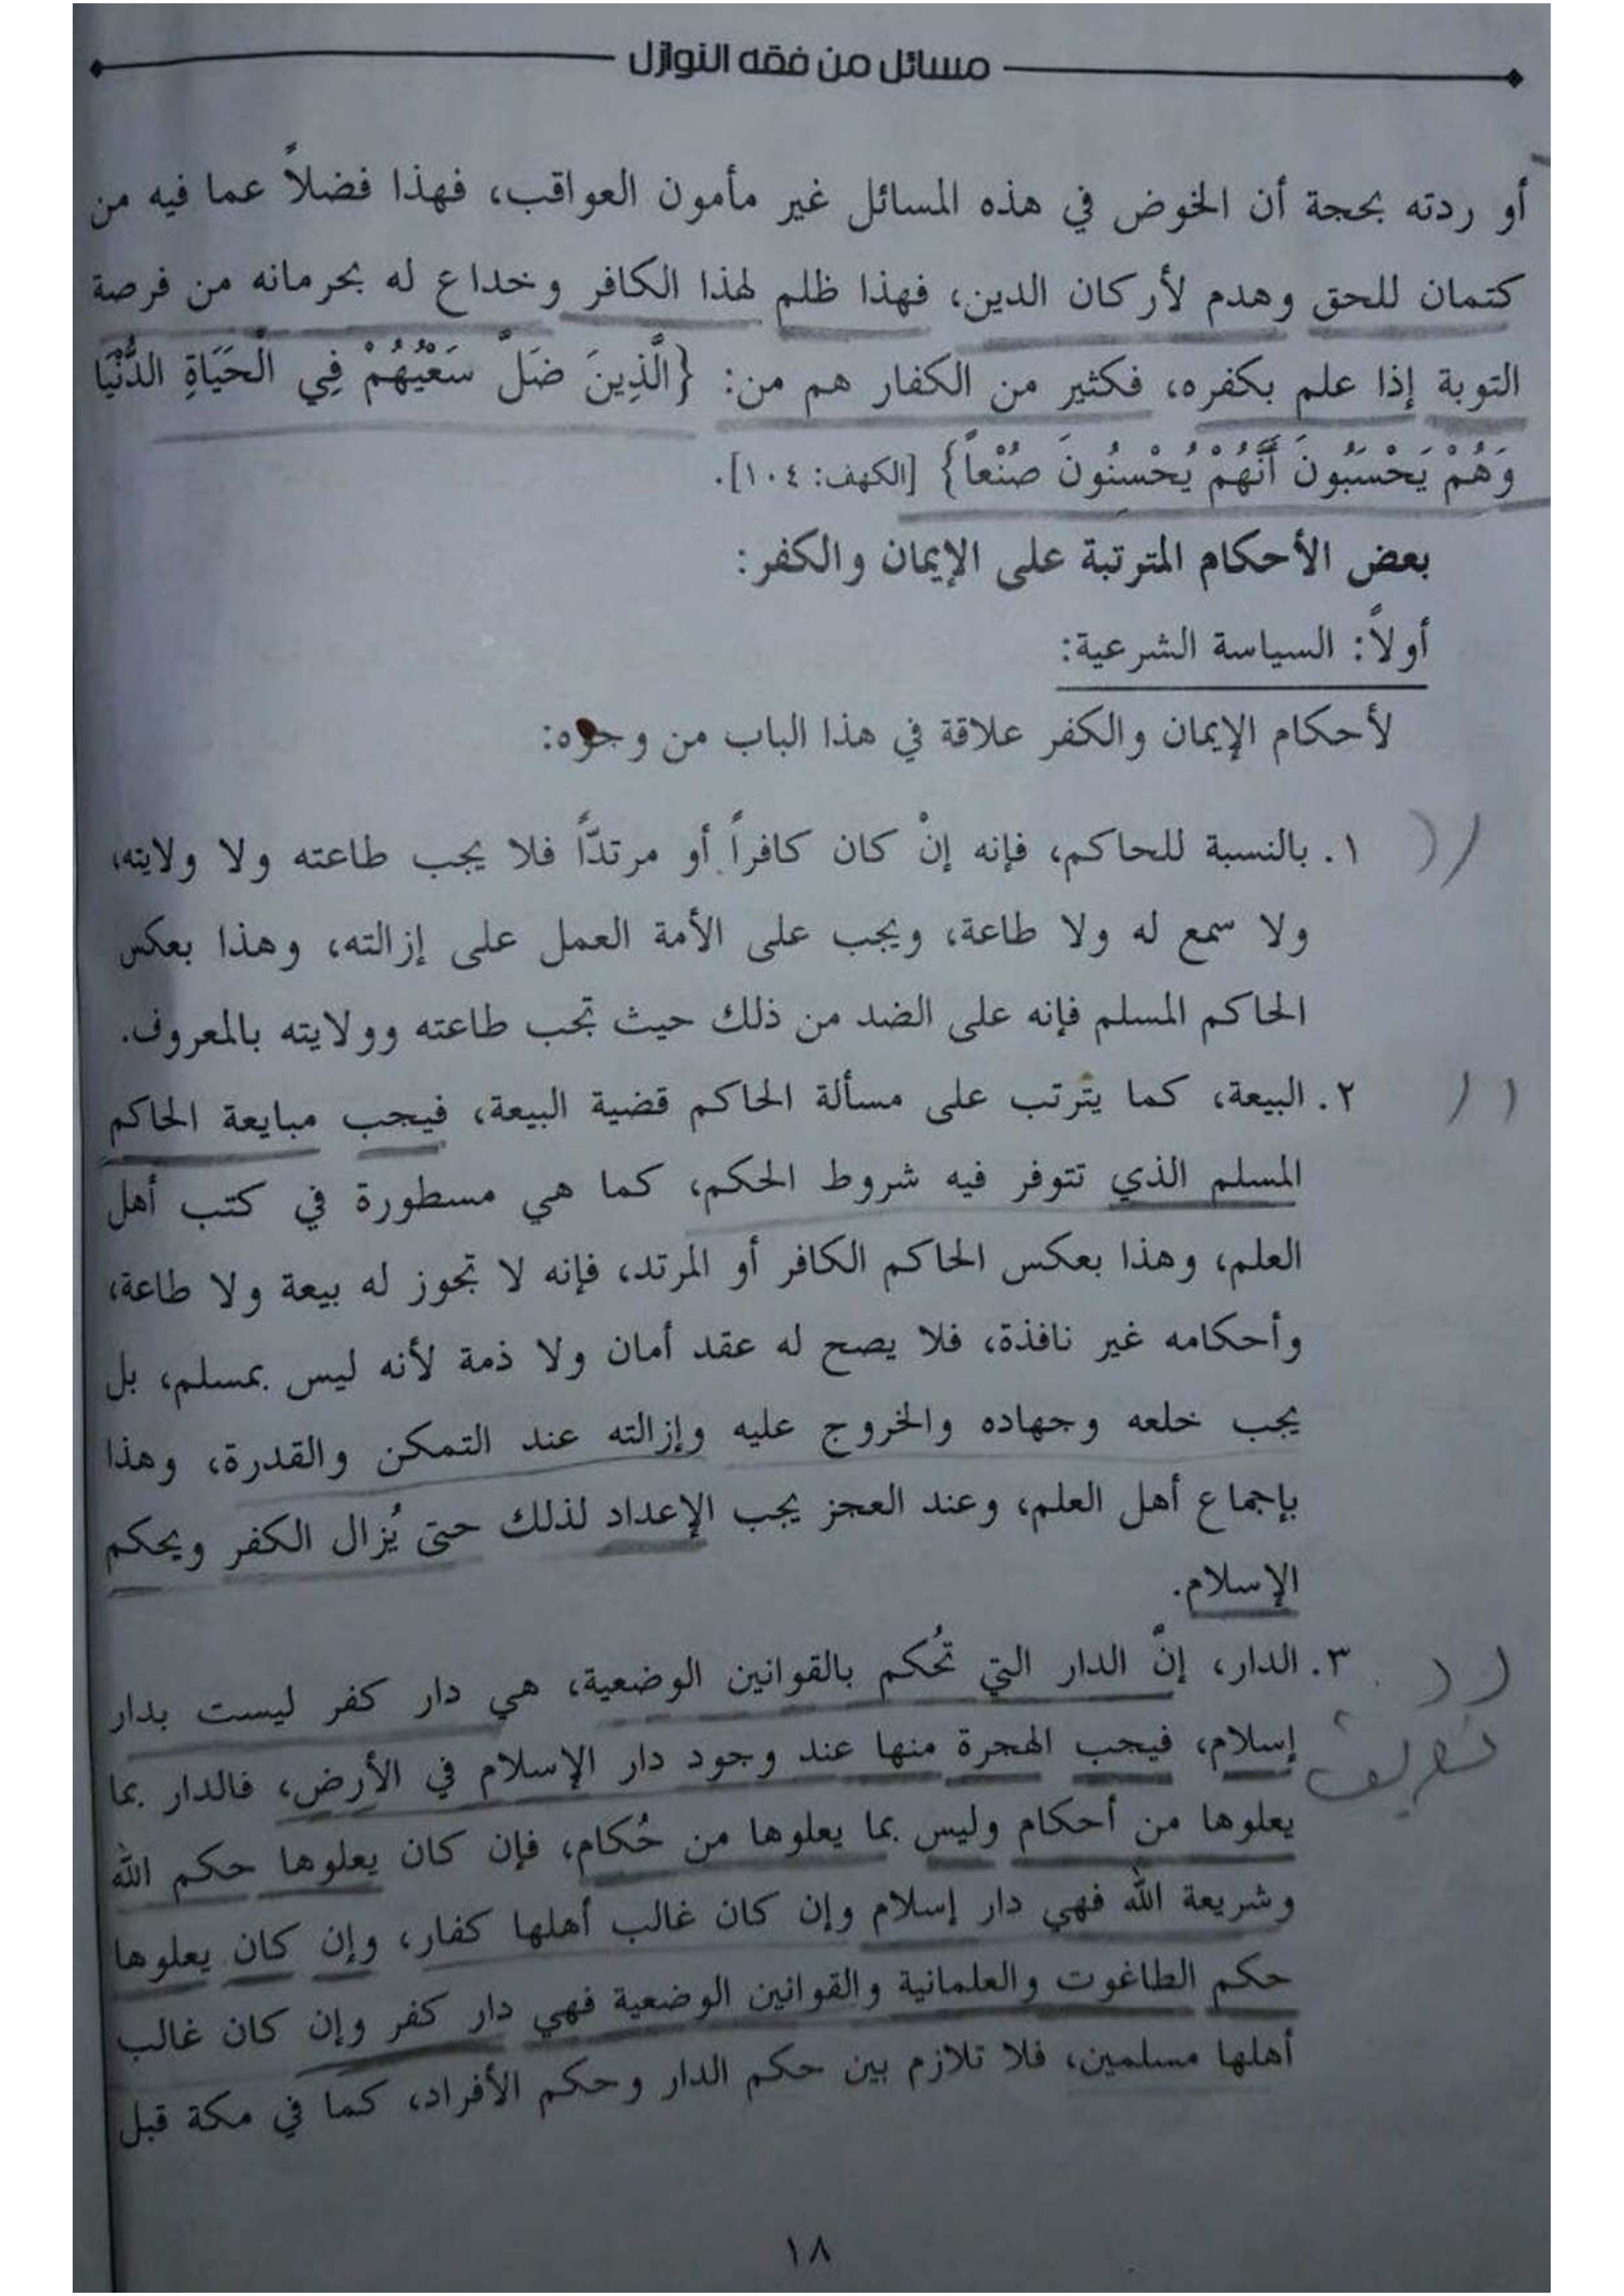 مسائل من فقه النوازل
أو ردته بحجة أن الخوض في هذه المسائل غير مأمون العواقب، فهذا فضلاً عما فيه من
كتمان للحق وهدم لأركان الدين، فهذا ظلم لهذا الكافر وخداع له بحرمانه من فرصة
التوبة إذا علم بكفره، فكثير من الكفار هم من: {الَّذِينَ ضَلَّ سَعْيُهُمْ فِي الْحَيَاةِ الدُّنْيَا
وَهُمْ يَحْسَبُونَ أَنَّهُمْ يُحْسِنُونَ صُنْعاً} [الكهف: ١٠٤].
بعض الأحكام المترتبة على الإيمان والكفر:
أولاً: السياسة الشرعية:
لأحكام الإيمان والكفر علاقة في هذا الباب من وجوه:
١. بالنسبة للحاكم، فإنه إنْ كان كافراً أو مرتدّاً فلا يجب طاعته ولا ولايته،
ولا سمع له ولا طاعة، ويجب على الأمة العمل على إزالته، وهذا بعكس
الحاكم المسلم فإنه على الضد من ذلك حيث تجب طاعته وولايته بالمعروف.
٢. البيعة، كما يترتب على مسألة الحاكم قضية البيعة، فيجب مبايعة الحاكم
المسلم الذي تتوفر فيه شروط الحكم، كما هي مسطورة في كتب أهل
العلم، وهذا بعكس الحاكم الكافر أو المرتد، فإنه لا تجوز له بيعة ولا طاعة،
وأحكامه غير نافذة، فلا يصح له عقد أمان ولا ذمة لأنه ليس بمسلم، بل
يجب خلعه وجهاده والخروج عليه وإزالته عند التمكن والقدرة، وهذا
بإجماع أهل العلم، وعند العجز يجب الإعداد لذلك حتى يُزال الكفر ويحكم
الإسلام.
٣. الدار، إنّ الدار التي تُحكم بالقوانين الوضعية، هي دار كفر ليست بدار
إسلام، فيجب الهجرة منها عند وجود دار الإسلام في الأرض، فالدار بما
يعلوها من أحكام وليس بما يعلوها من حُكام، فإن كان يعلوها حكم الله
وشريعة الله فهي دار إسلام وإن كان غالب أهلها كفار، وإن كان يعلوها
حكم الطاغوت والعلمانية والقوانين الوضعية فهي دار كفر وإن كان غالب
أهلها مسلمين، فلا تلازم بين حكم الدار وحكم الأفراد، كما في مكة قبل
١٨